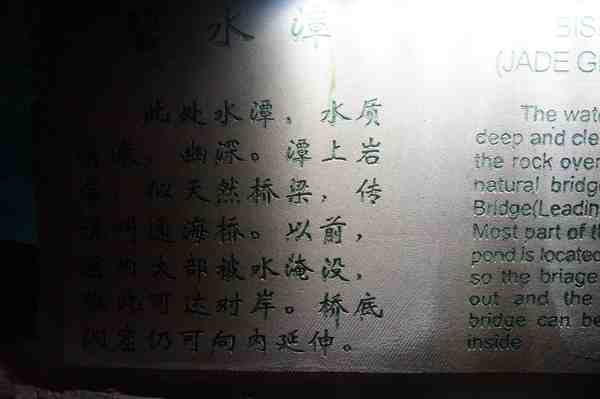 碧水潭
此处水潭，水质
清澈，幽深。潭上岩
似天然桥梁，传
说叫通海桥。以前，
大部被水淹没，
此可达对岸。桥底
洞室仍可向内延伸。
BIS
(JADE G
The wate
deep and cle
the rock over
natural bridge
Bridge(Leadin
Most part of t
pond is located
so the briage
out and the
bridge can be
inside